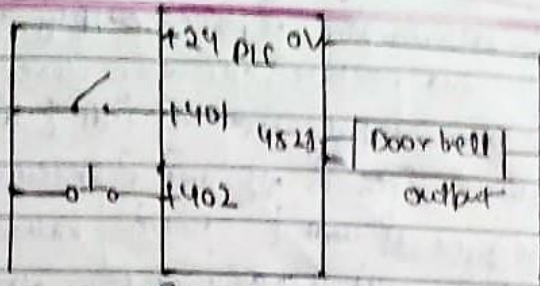 +24 PLC 0V
+401
4821
Doorbell
+402
output